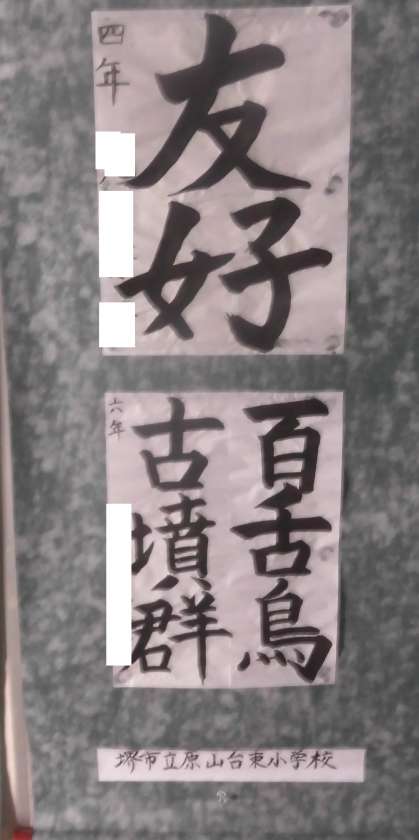 友好
四年
百舌鳥
古墳群
六年
堺市立原山台東小学校